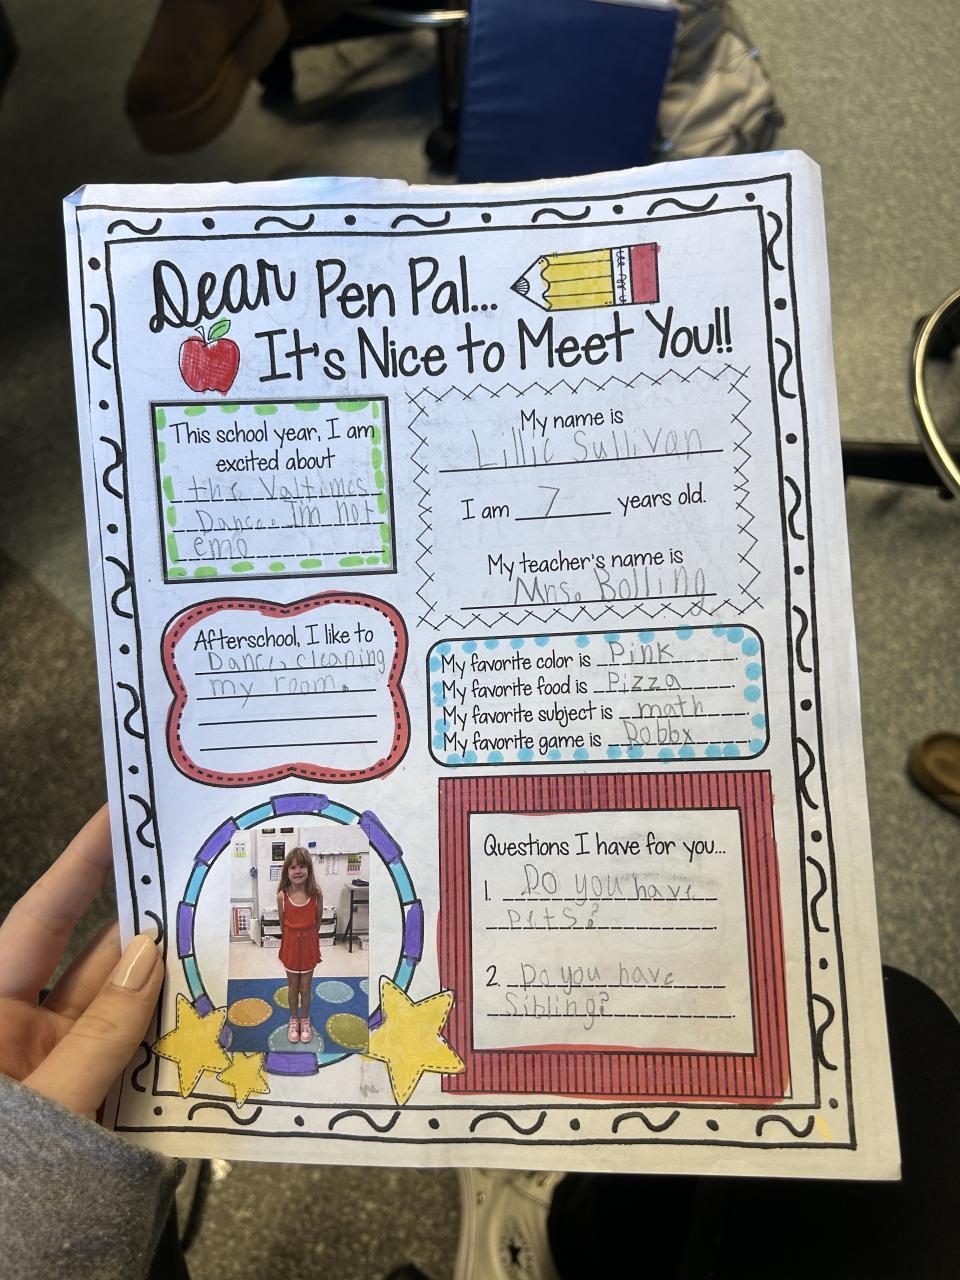 Dear Pen Pal...
It's Nice to Meet You!!
This school year, I am
excited about
the Valtimes
Dance. Im not
emo
My name is
Lillie Sullivan
I am 7 years old.
My teacher's name is
Mrs. Bolling
Afterschool, I like to
Dance, cleaning
my room.
My favorite color is Pink.
My favorite food is Pizza.
My favorite subject is math.
My favorite game is Robbx.
Questions I have for you...
1. Do you have
pets?
2. Do you have
Sibling?